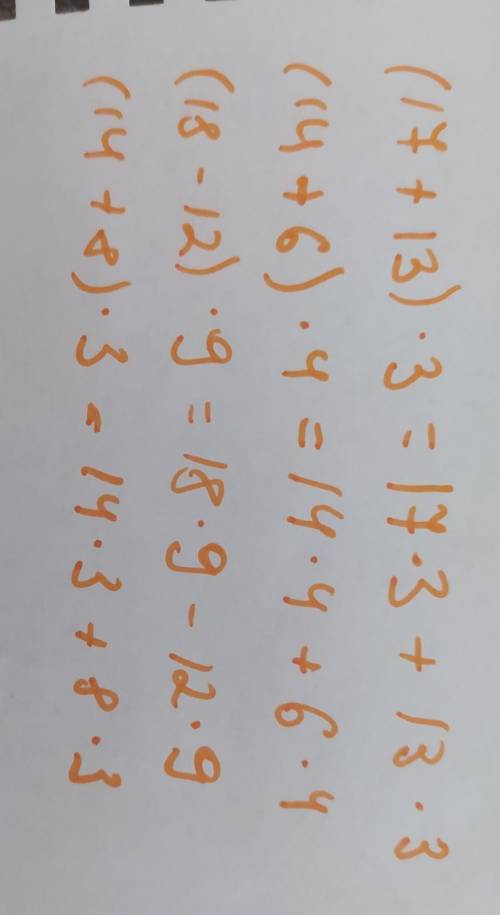 (17 + 13) · 3 = 17 · 3 + 13 · 3
(14 + 6) · 4 = 14 · 4 + 6 · 4
(18 - 12) · 9 = 18 · 9 - 12 · 9
(14 + 8) · 3 = 14 · 3 + 8 · 3